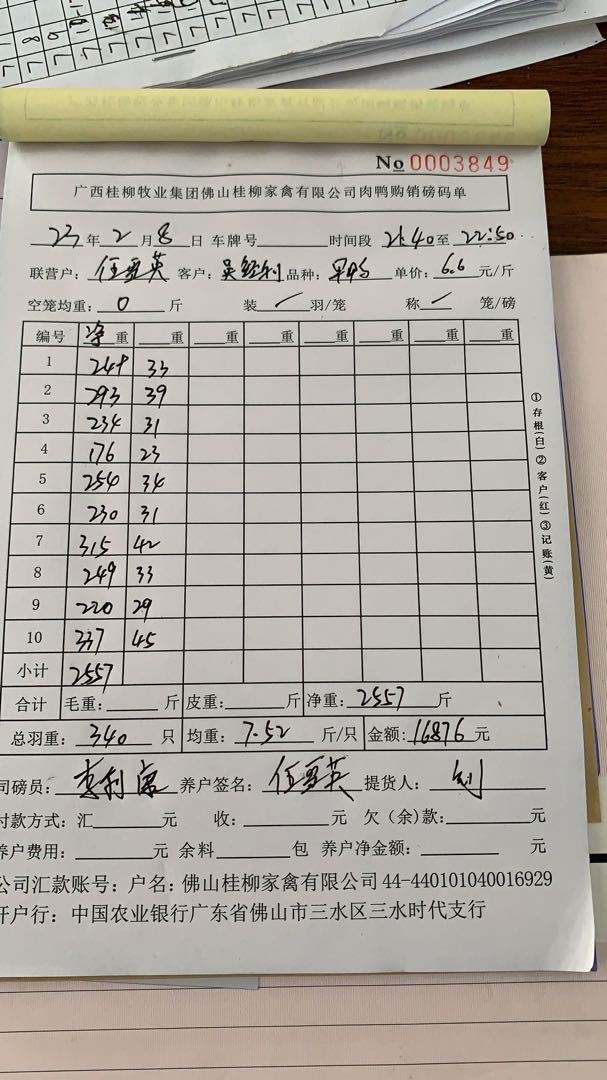 No 0003849
广西桂柳牧业集团佛山桂柳家禽有限公司肉鸭购销磅码单
23年2月8日 车牌号 时间段 21:40至22:50
联营户: 任雪英 客户: 吴经利 品种: 旱鸭 单价: 6.6 元/斤
空笼均重: 0 斤 装 / 羽/笼 称 / 笼/磅
编号 净重 重 重 重 重 重 重 重
1 249 33
2 293 39
3 234 31
4 176 23
5 254 34
6 230 31
7 315 42
8 249 33
9 220 29
10 337 45
小计 2557
合计 毛重: 斤 皮重: 斤 净重: 2557 斤
总羽重: 340 只 均重: 7.52 斤/只 金额: 16876 元
司磅员: 养户签名: 任雪英 提货人:
付款方式: 汇 元 收: 元 欠(余)款: 元
养户费用: 元 余料 包 养户净金额: 元
公司汇款账号: 户名: 佛山桂柳家禽有限公司 44-440101040016929
开户行: 中国农业银行广东省佛山市三水区三水时代支行
①存根(白)②客户(红)③记账(黄)